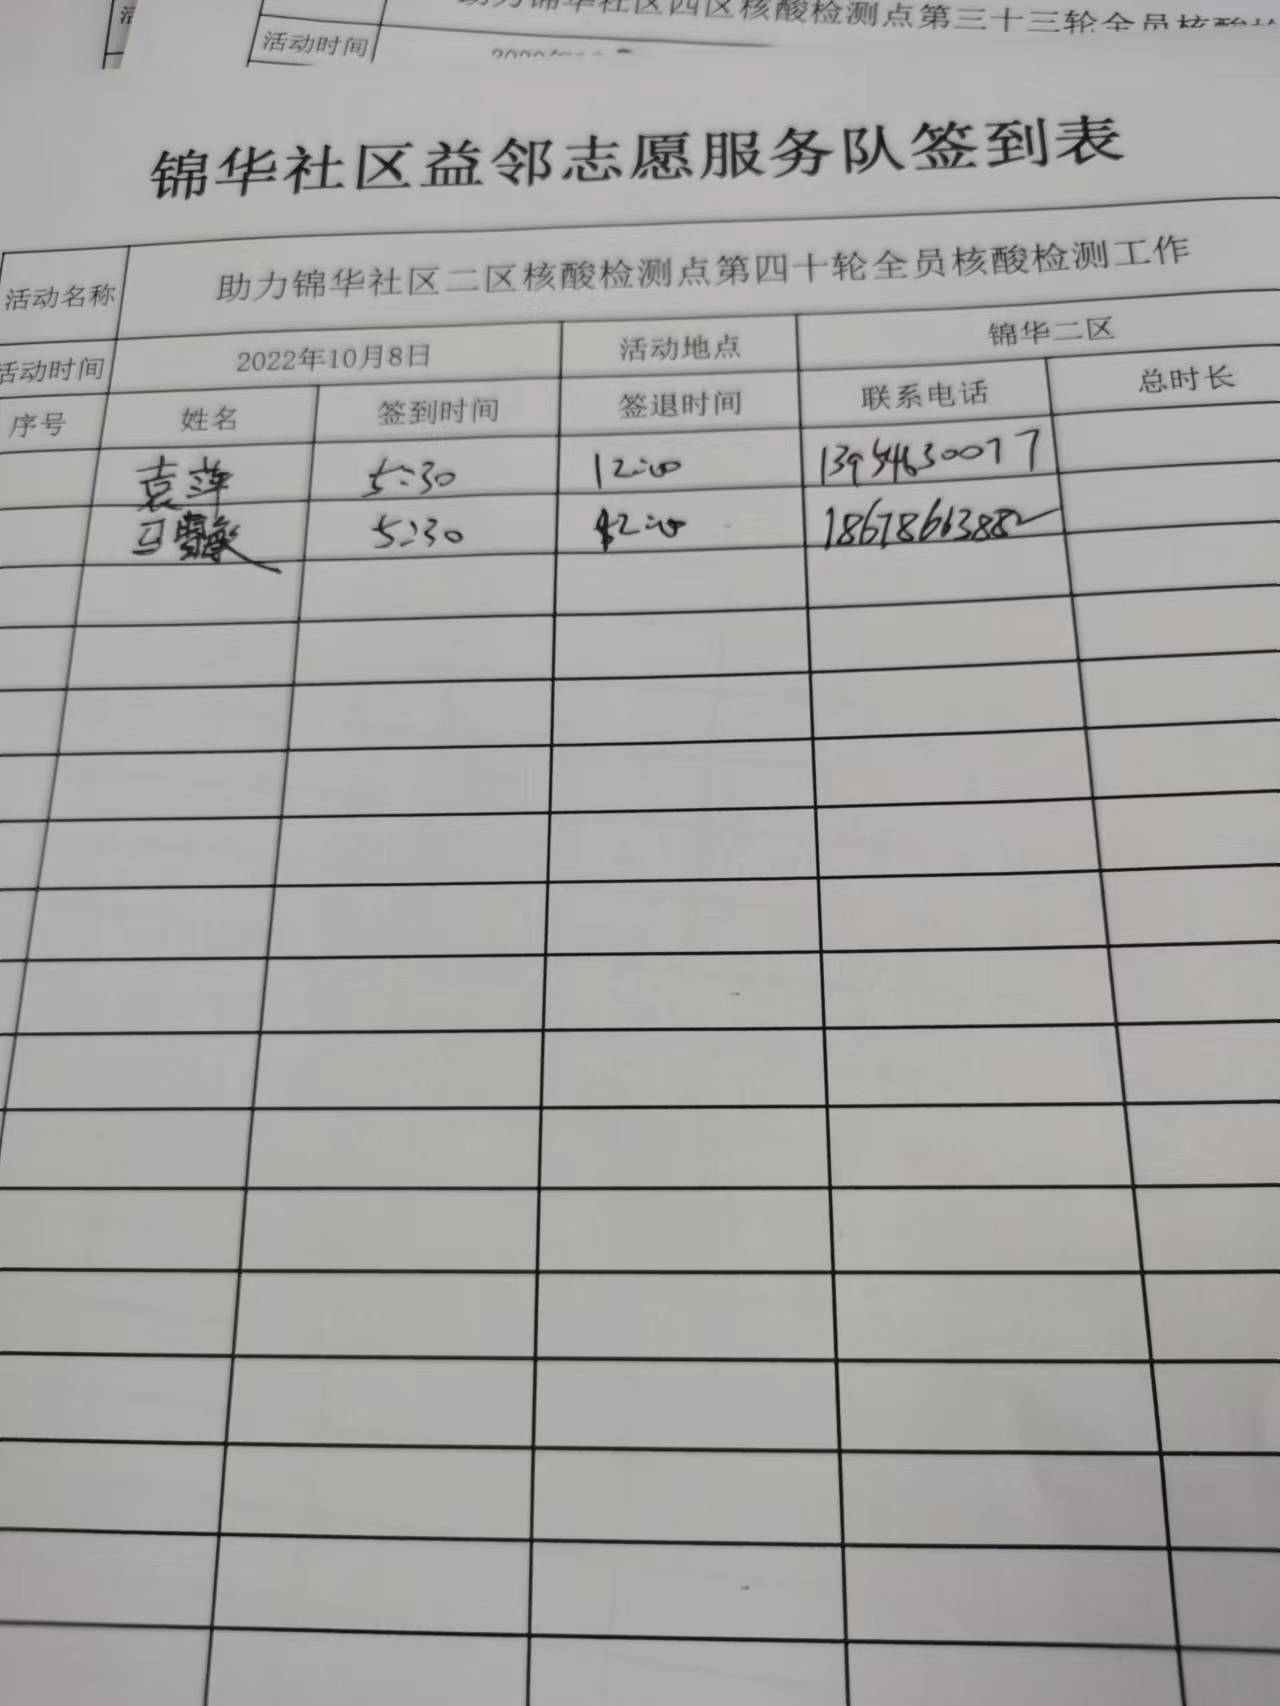 助力锦华社区四区核酸检测点第三十三轮全员核酸检
活动时间
锦华社区益邻志愿服务队签到表
活动名称 助力锦华社区二区核酸检测点第四十轮全员核酸检测工作
活动时间 2022年10月8日 活动地点 锦华二区
序号 姓名 签到时间 签退时间 联系电话 总时长
袁萍 5:30 12:00 13954630077
马 5:30 12:00 18678663882